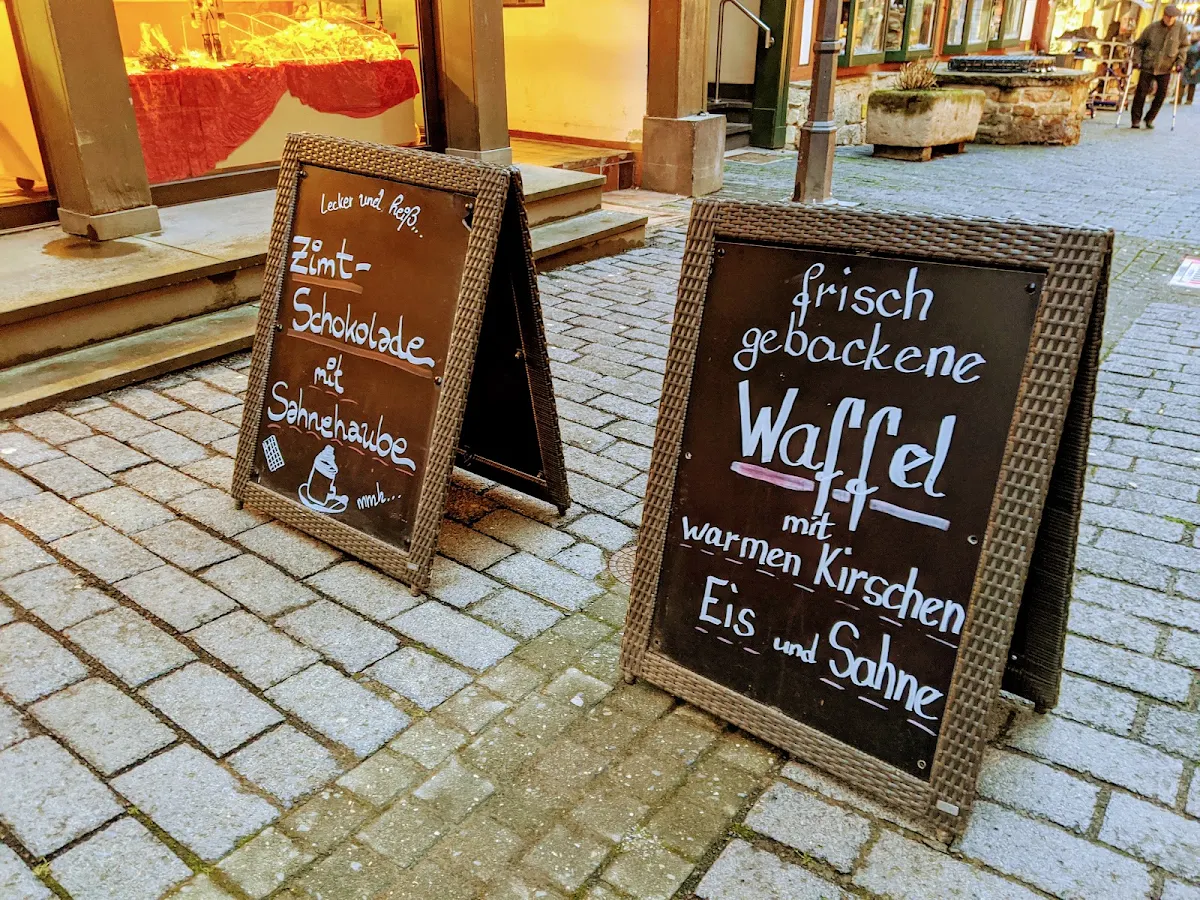 Lecker und heiß...
Zimt-
Schokolade
mit
Sahnehaube
mmh...
frisch
gebackene
Waffel
mit
warmen Kirschen
Eis und Sahne